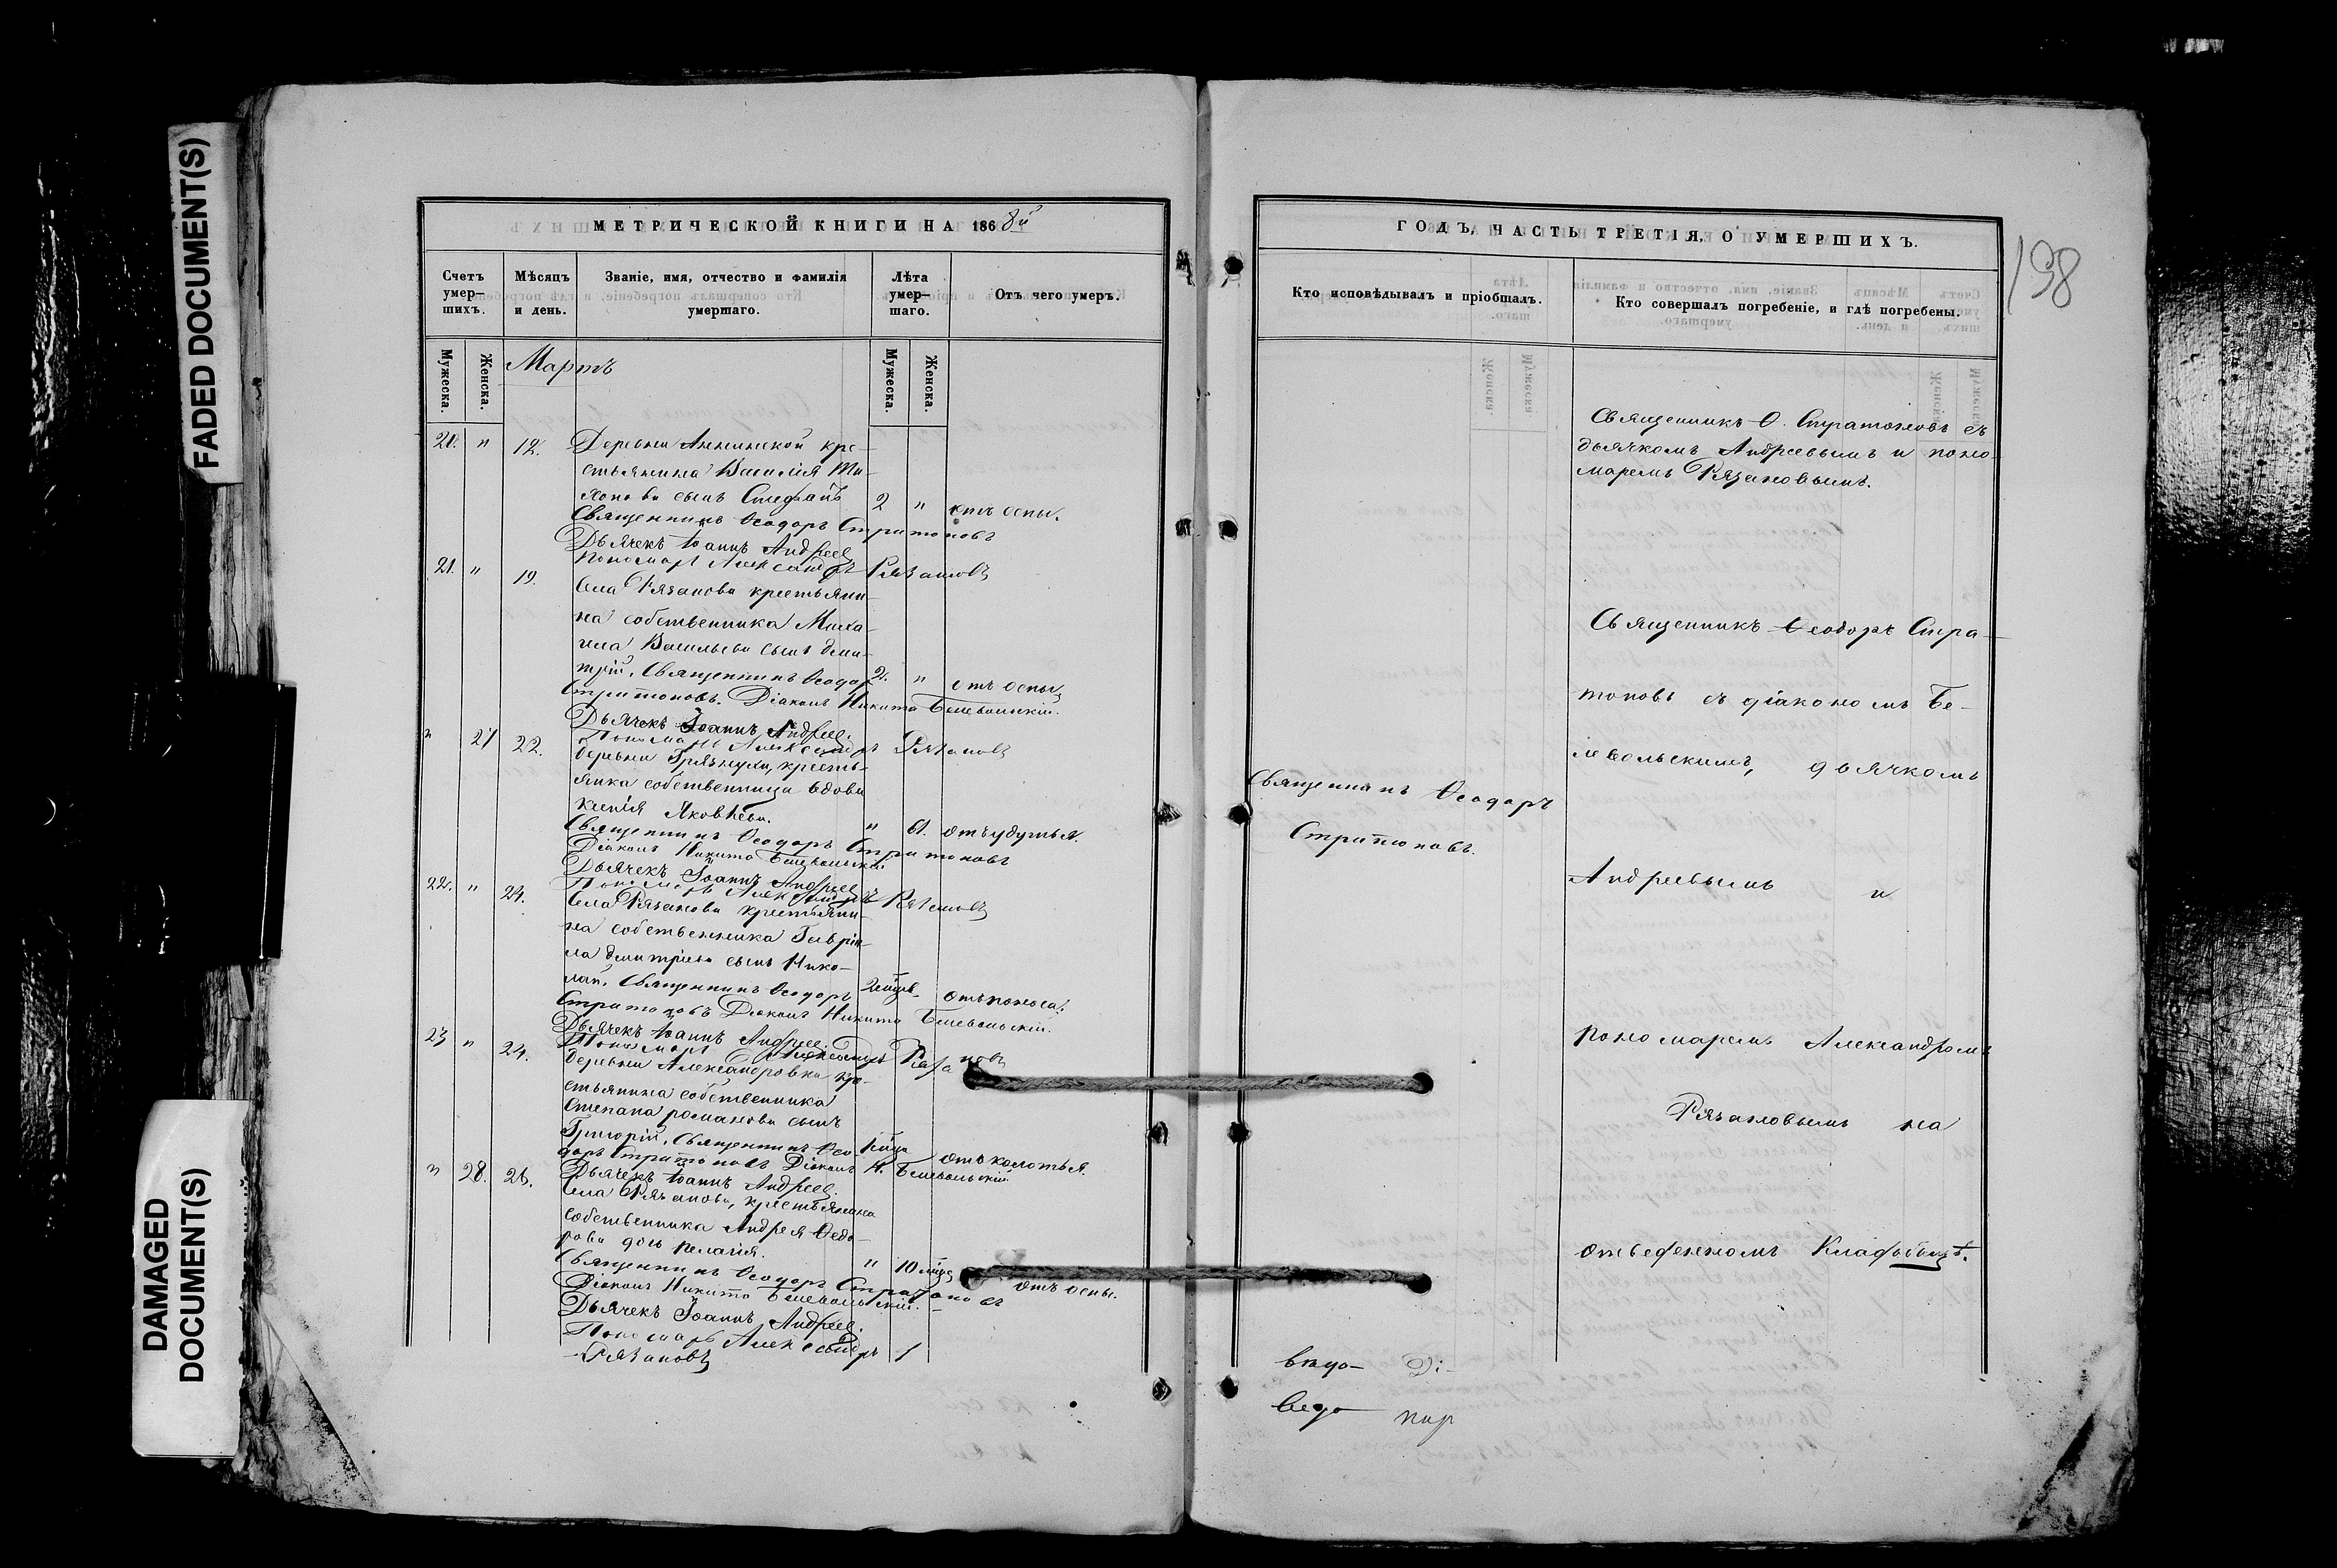 FADED DOCUMENT(S)
DAMAGED
DOCUMENT(S)
МЕТРИЧЕСКОЙ КНИГИ НА 1868й
Счетъ умер-шихъ.
Мѣсяцъ и день.
Званіе, имя, отчество и фамилія умершаго.
Лѣта умер-шаго.
Отъ чего умеръ.
Мужеска.
Женска.
Мартъ
Мужеска.
Женска.
20. " 12. Деревни Аннинской кре-
стьянина Василія Ти-
хонова сынъ Стефанъ 2 " отъ оспы.
Священникъ Ѳеодоръ Стратоновъ
Дьячекъ Іоаннъ Андреев
Пономарь Александръ Рязановъ
21. " 19. Села Рязанова крестьяни-
на собственника Миха-
ила Васильева сынъ Дми-
трій. Священникъ Ѳеодоръ 2. " отъ оспы
Стратоновъ. Діаконъ Никита Белевольскій.
Дьячекъ Іоаннъ Андреев.
Пономарь Александръ Рязановъ
" 27 22. Деревни Грязнухи, кресть-
янка собственница вдова
Ксенія Яковлева. " 61. отъ удушья.
Священникъ Ѳеодоръ Стратоновъ
Діаконъ Никита Белевольскій
Дьячекъ Іоаннъ Андреев
Пономарь Александръ Рязановъ
22. " 24. Села Рязанова крестьяни-
на собственника Гаврі-
ла Дмитріева сынъ Нико-
лай. Священникъ Ѳеодоръ отъ поноса.
Стратоновъ Діаконъ Никита Белевольскій.
Дьячекъ Іоаннъ Андреев.
Пономарь Александръ Рязановъ
23 " 24. Деревни Александровки кре-
стьянина собственника
Степана Романова сынъ
Григорій. Священникъ Ѳео- отъ колотья.
доръ Стратоновъ Діаконъ Н. Белевольскій
Дьячекъ Іоаннъ Андреев.
" 28. 26. Села Рязанова, крестьянина
собственника Андрея Ѳедо-
рова дочь Пелагія.
" 10 мѣся отъ оспы.
Священникъ Ѳеодоръ Стратоновъ
Діаконъ Никита Белевольскій.
Дьячекъ Іоаннъ Андреев.
Пономарь Александръ
Рязановъ
ГОДЪ, ЧАСТЬ ТРЕТІЯ, О УМЕРШИХЪ.
198
Кто исповѣдывалъ и пріобщалъ.
Кто совершалъ погребеніе, и гдѣ погребены.
Священникъ Ѳ. Стратоновъ съ
дьячкомъ Андреевымъ и поно-
маремъ Рязановымъ.
Священникъ Ѳеодоръ Стра-
тоновъ съ діакономъ Бе-
левольскимъ, дьячкомъ
Священникъ Ѳеодоръ
Стратоновъ.
Андреевымъ и
пономаремъ Александромъ
Рязановымъ на
отведенномъ Кладбищѣ.
Ді-